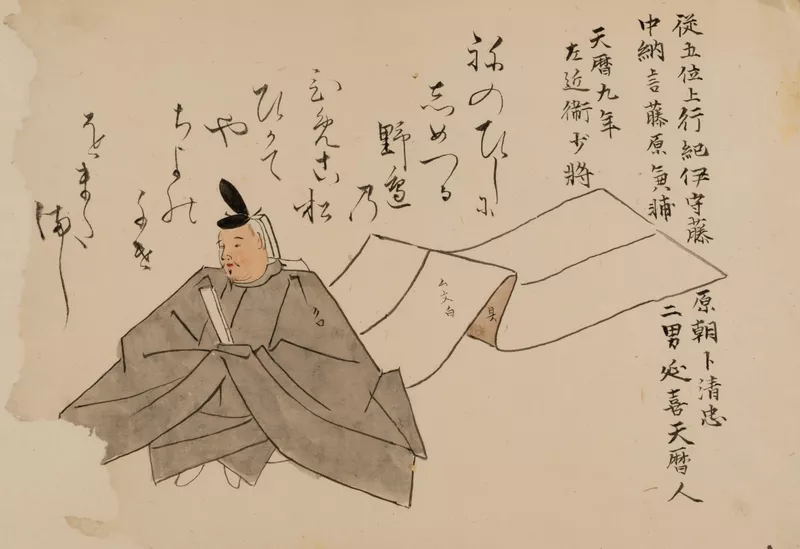 從五位上行紀伊守藤
原朝卜清忠
中納言藤原兼輔
二男延喜天暦人
天暦九年
左近衛少將
祢のひしに
志めつる
野邉
乃
ひ免こ松
ひかて
や
ちよの
かけ
をまたまし
文白